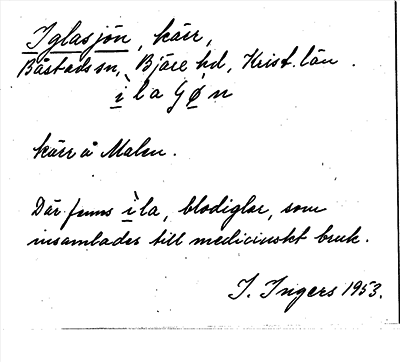 Iglasjön, kärr,
Båstads sn, Bjäre hd, Krist. län.
ìla Gøn
kärr å Malen.
Där finns ìla, blodiglar, som
insamlades till medicinskt bruk.
I. Ingers 1953.